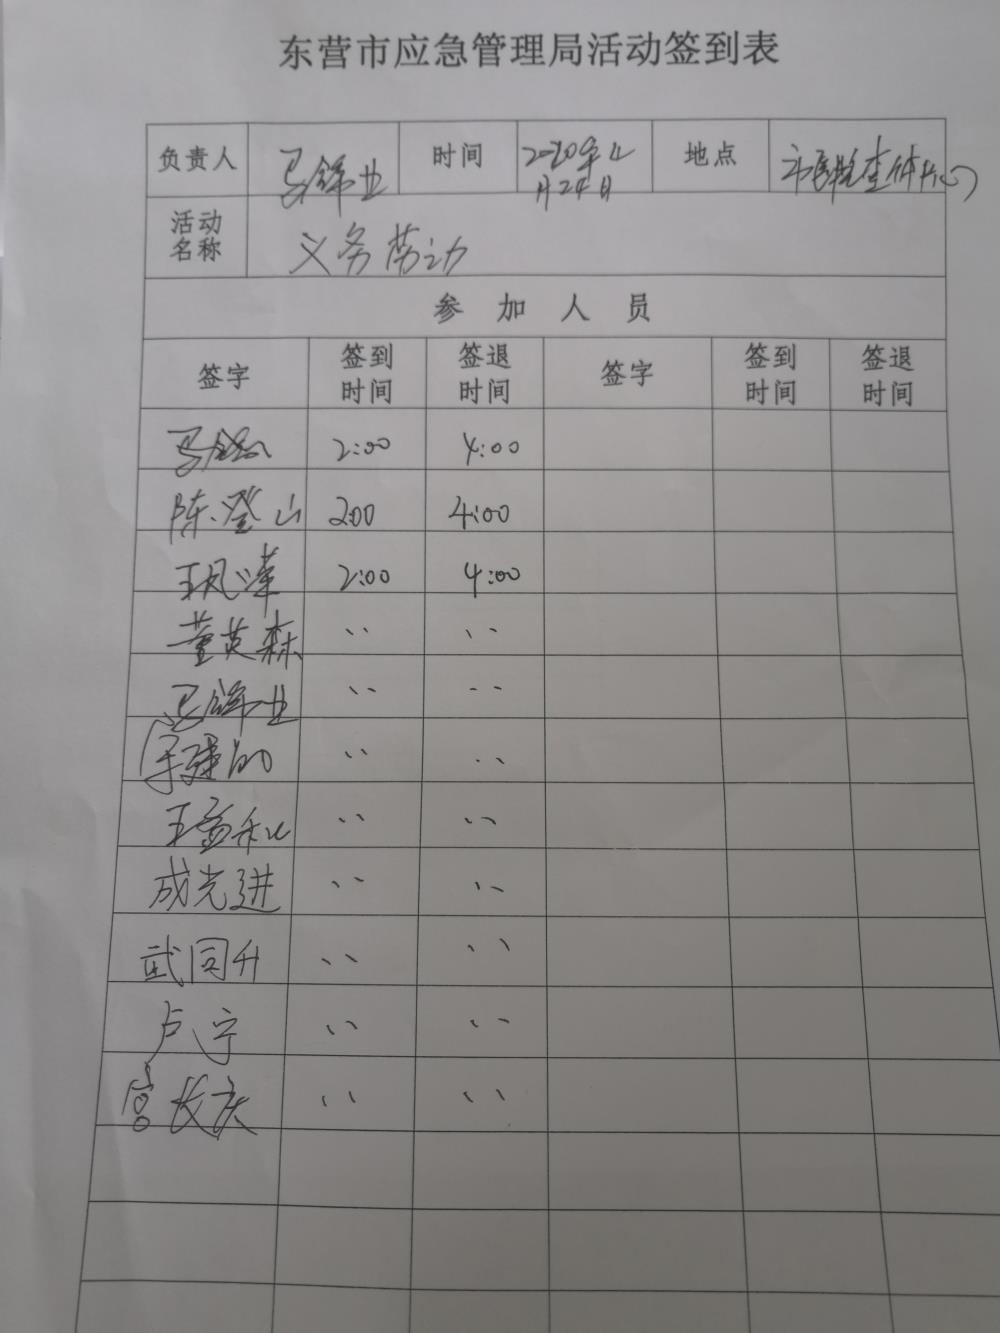 东营市应急管理局活动签到表
负责人 马锦业 时间 2020年12月24日 地点 市
活动名称 义务劳动
参加人员
签字 签到时间 签退时间 签字 签到时间 签退时间
2:00 4:00
陈登山 200 4:00
王凤 2:00 4:00
董英森 〃 〃
马锦业 〃 〃
〃 〃
王 〃 〃
成光进 〃 〃
武同升 〃 〃
卢宁 〃 〃
宫长庆 〃 〃